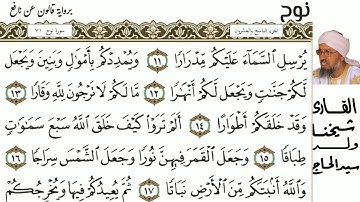 برواية قالون عن نافع
الجزء التاسع والعشرون
سورة نوح ٧١
نوح
يُرْسِلِ السَّمَآءَ عَلَيْكُم مِّدْرَارًا ١١ وَيُمْدِدْكُم بِأَمْوَٰلٍ وَبَنِينَ وَيَجْعَل
لَّكُمْ جَنَّٰتٍ وَيَجْعَل لَّكُمْ أَنْهَٰرًا ١٢ مَّا لَكُمْ لَا تَرْجُونَ لِلهِ وَقَارًا ١٣
وَقَدْ خَلَقَكُمْ أَطْوَارًا ١٤ أَلَمْ تَرَوْا كَيْفَ خَلَقَ اللهُ سَبْعَ سَمَٰوَٰتٍ
طِبَاقًا ١٥ وَجَعَلَ الْقَمَرَ فِيهِنَّ نُورًا وَجَعَلَ الشَّمْسَ سِرَاجًا ١٦
وَاللهُ أَنۢبَتَكُم مِّنَ الْأَرْضِ نَبَاتًا ١٧ ثُمَّ يُعِيدُكُمْ فِيهَا وَيُخْرِجُكُمْ
القارئ
شيخنا
ولد
سيد الحاج